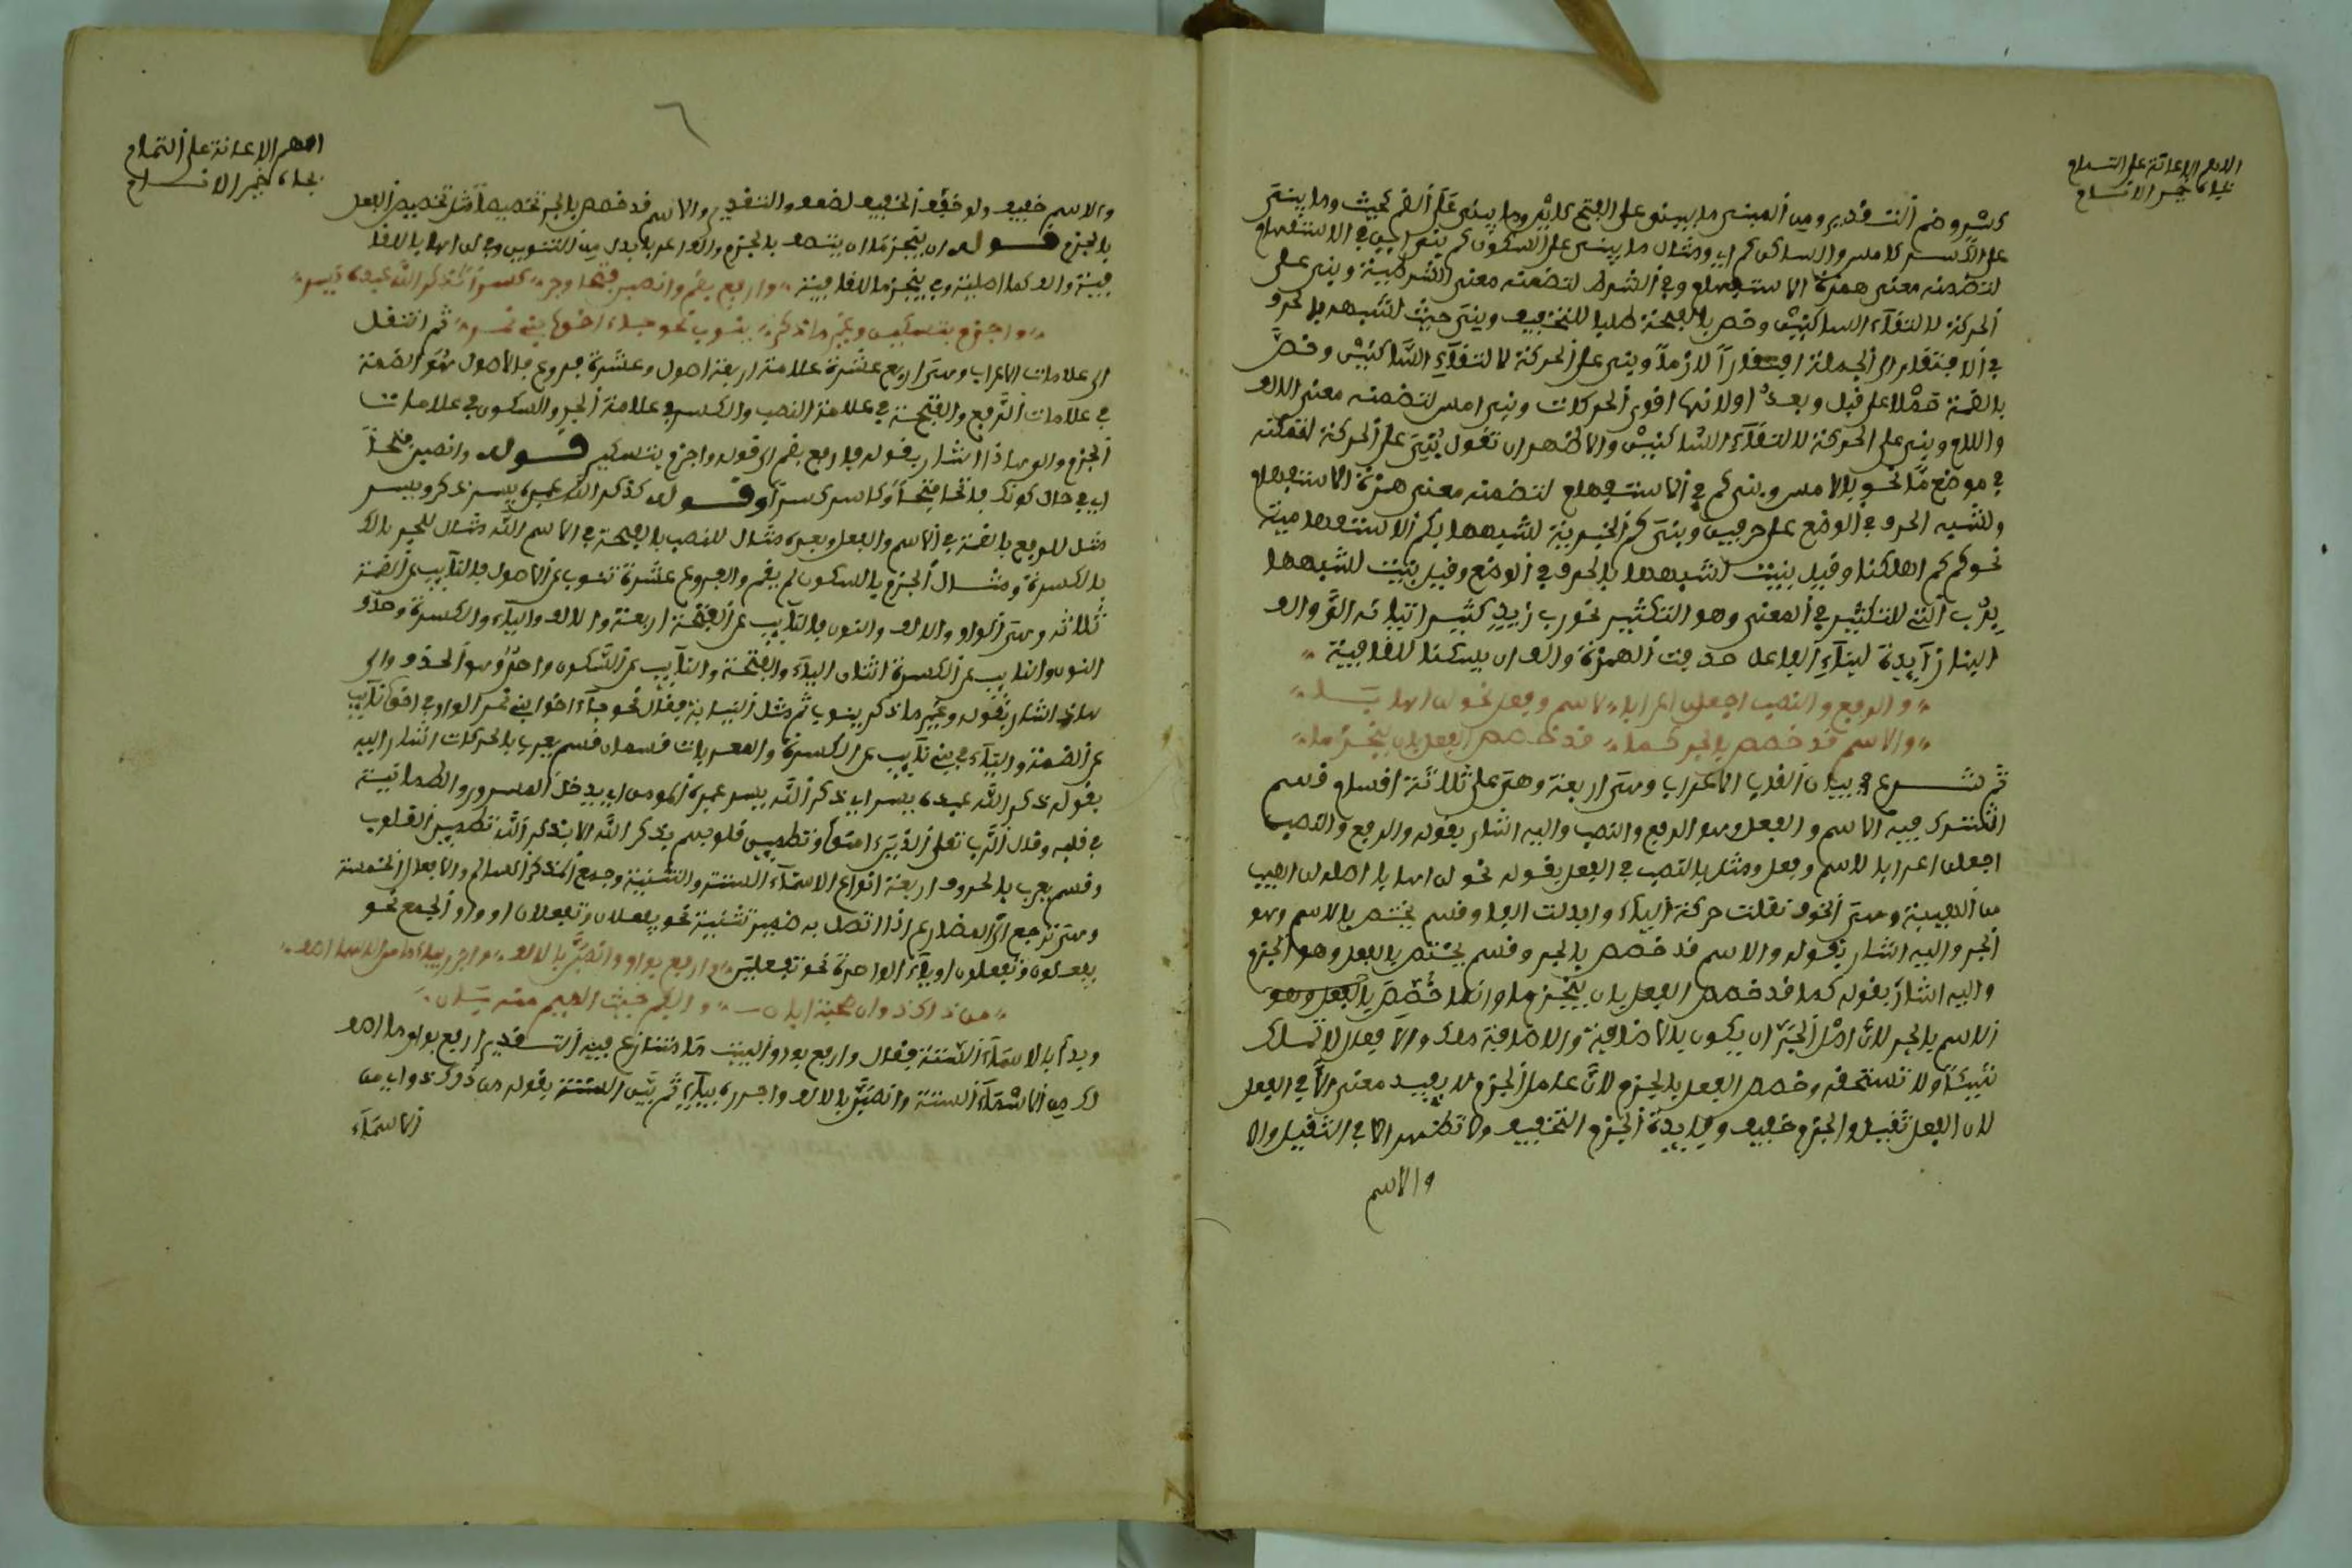 اللهم الاعانة على التمام
بجاه خير الانام
كسر وضم التقدير ومن المبنى ما يبنى على الفتح كاين وما يبنى على الضم كحيث وما يبنى
على الكسر كامس والساكن كم اي ومثال ما يبنى على السكون كم بنى اين في الاستفهام
لتضمنه معنى همزة الاستفهام وفي الشرط لتضمنه معنى الشرطية وبنى على
الحركة لالتقاء الساكنين وخص بالفتحة طلبا للتخفيف وبنى حيث لشبهه بالحرف
في الافتقار الى الجملة افتقارا لازما وبنى على الحركة لالتقاء الساكنين وخص
بالضمة حملا على قبل وبعد او لانها اقوى الحركات وبنى امس لتضمنه معنى الالف
واللام وبنى على الحركة لالتقاء الساكنين والاظهر ان تقول بنى على الحركة لتمكنه
في موضع ما نحو بالامس وبنى كم في الاستفهام لتضمنه معنى همزة الاستفهام
ولشبه الحرف في الوضع على حرفين وبنى كم الخبرية لشبهها بكم الاستفهامية
نحو كم كم اهلكنا وقيل بنيت لشبهها بالحرف في الوضع وقيل بنيت لشبهها
برب التي للتكثير في المعنى وهو التكثير نحو رب زيد كثير
البناء زايدة لبناء الفاعل حذفت الهمزة والف ان يسكنا للقافية
والرفع والنصب اجعلن اعرابا لاسم وفعل نحو لن اهابا
والاسم قد خصص بالجر كما قد خصص الفعل بان ينجزما
ثم شرع في بيان القاب الاعراب وهى اربعة وهى على ثلاثة اقسام قسم
اشترك فيه الاسم والفعل وهو الرفع والنصب واليه اشار بقوله والرفع والنصب
اجعلن اعرابا لاسم وفعل ومثل بالنصب في الفعل بقوله نحو لن اهابا اصله لن اهيب
من الهيبة وهى الخوف نقلت حركة الياء وابدلت الفا وقسم يختص بالاسم وهو
الجر واليه اشار بقوله والاسم قد خصص بالجر وقسم يختص بالفعل وهو الجزم
واليه اشار بقوله كما قد خصص الفعل بان ينجزما وانما خصص بالفعل وهو
الاسم بالجر لان اصل الجر ان يكون بالاضافية والاضافية ملك والافعال لا تملك
شيئا ولا تستحقه وخصص الفعل بالجزم لان عامل الجزم لا يفيد معنى الا في الفعل
لان الفعل ثقيل والجزم خفيف وفايدة الجزم التخفيف ولا تظهر الا في الثقيل والا
والاسم
اللهم الاعانة على التمام
بجاه خير الانام
والاسم خفيف ولو خفف الخفيف لضعف والتقدير والاسم قد خصص بالجر تخصيصا مثل تخصيص الفعل
بالجزم قوله ان ينجزما ان يتصف بالجزم والفه عوض بدل من التنوين وفي لن اهابا للقا
فية والف كما اصلية وفي ينجزما للقافية وارفع بضم وانصبن فتحا وجر كسرا كذكر الله عبده يسر
واجزم بتسكين وغير ما ذكر ينوب نحو جاء اخو بنى نمر ثم انتقل
الى علامات الاعراب وهى اربع عشرة علامة اربعة اصول وعشرة فروع فالاصول هو الضمة
في علامات الرفع والفتحة في علامة النصب والكسر في علامة الجر والسكون في علامات
الجزم والى هذا اشار بقوله فارفع بضم الى قوله واجزم بتسكين قوله وانصبن فتحا
اي في حال كونك فاتحا فتحا وكاسر كسرا وقوله كذكر الله عبده يسر ذكر ويسر
مثل للرفع بالضمة في الاسم والفعل وعبده مثال للنصب بالفتحة في الاسم الله مثال للجر بالك
بالكسرة ومثال الجزم بالسكون لم يقم والفروع عشرة تنوب عن الاصول فالنايب عن الضمة
ثلاثة وهى الواو والالف والنون فالنايب عن الفتحة اربعة والالف والياء والكسرة وحذف
النون والنايب عن الكسرة اثنان الياء والفتحة والنايب عن السكون واحد وهو الحذف والى
هذا اشار بقوله وغير ما ذكر ينوب ثم مثل النيابة فقال نحو جاء اخو بنى نمر الواو في اخو نايب
عن الضمة والياء في بنى نايب عن الكسرة والمعربات قسمان قسم يعرب بالحركات اشار اليه
بقوله ذكر الله عبده يسر اي ذكر الله يسر عبده المومن اي يدخل السرور والطمانينة
في قلبه وقال الرب تعلى الذين امنوا وتطمين قلوبهم بذكر الله الا بذكر الله تطمين القلوب
وقسم يعرب بالحروف اربعة انواع الاسماء الستة والتثنية وجمع المذكر السالم والافعال الخمسة
وهى ترجع الى المضارع اذا اتصل به ضمير تثنية نحو يفعلان وتفعلان او واو الجمع نحو
يفعلون وتفعلون او ياء الواحدة نحو تفعلين وارفع بواو وانصبن بالالف واجرر بياء ما من الاسما اصف
من ذاك ذو ان صحبة ابانا والفم حيث الميم منه بانا
وبدا بالاسماء الستة فقال وارفع بواو البيت مما تنازع فيه التقدير ارفع بواو ما اصف
لك من الاسماء الستة وانصبن بالالف واجرره بياء ثم بين الستة بقوله من ذاك ذو اي من
الاسماء